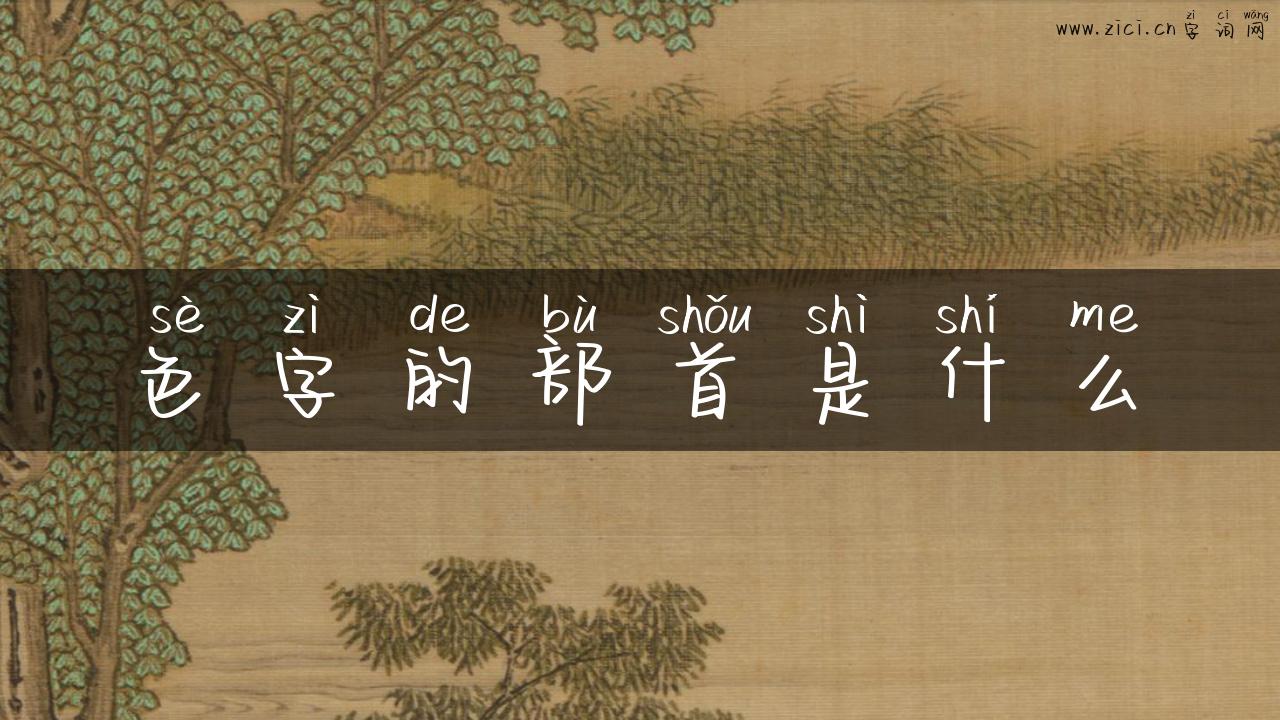 www.zici.cn字词网
zì cí wǎng
sè zì de bù shǒu shì shí me
色字的部首是什么